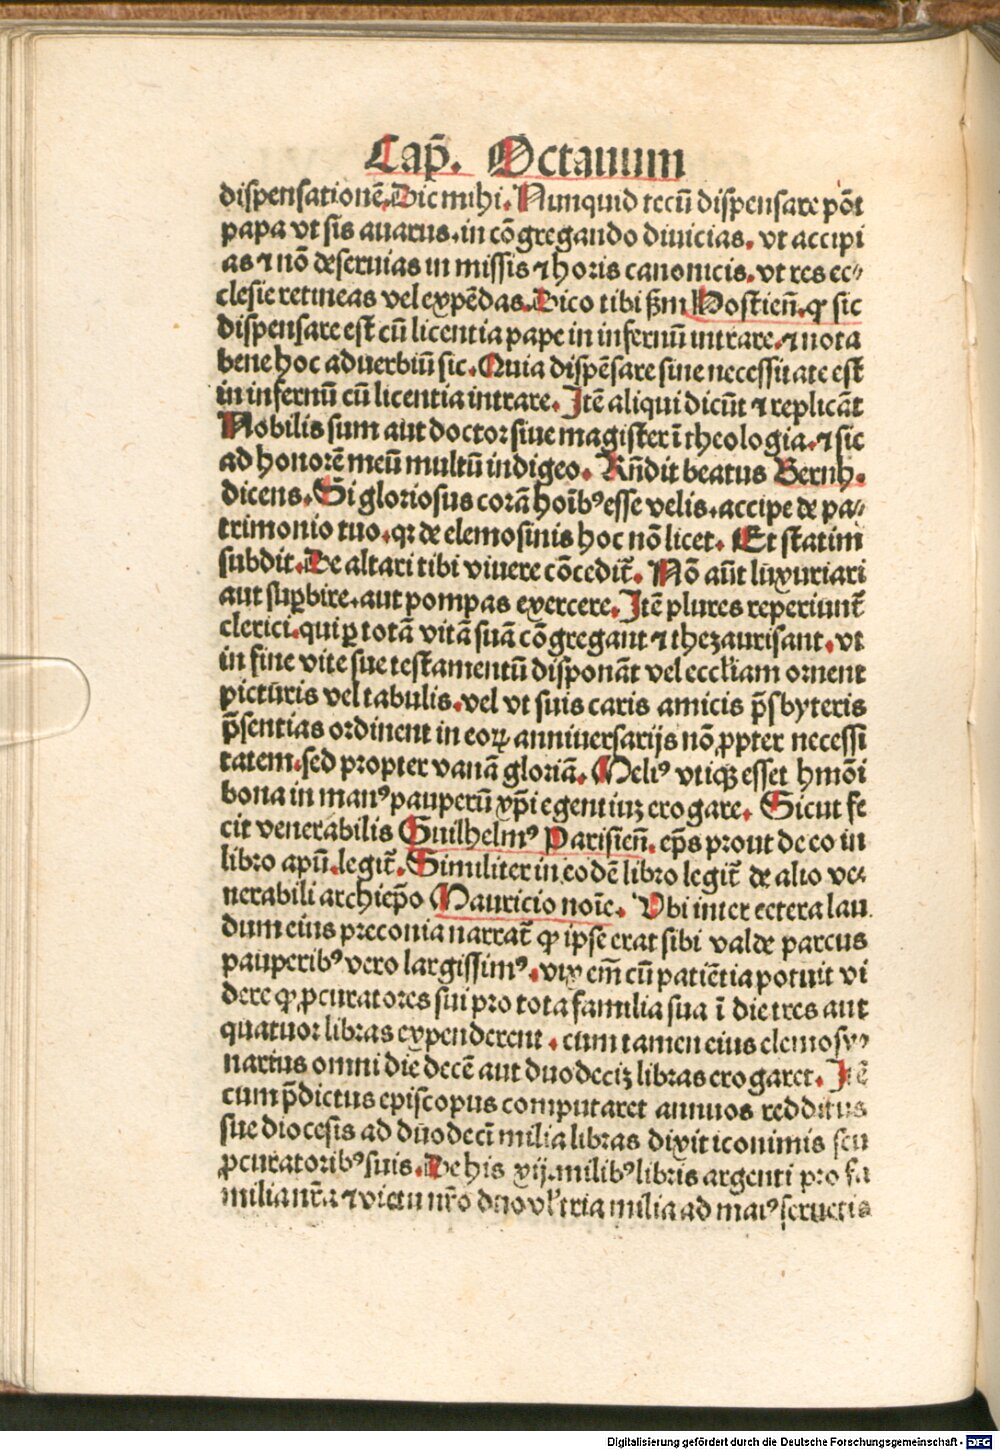 Cap̃. Octauum
dispensationē. Dic mihi. Nunquid tecū dispensare põt
papa vt sis auarus. in cōgregando diuicias. vt accipi
as ⁊ nō deseruias in missis ⁊ horis canonicis. vt res ec⸗
clesie retineas vel expēdas. Dico tibi ẜm Hostieñ. ꝙ sic
dispensare est cū licentia pape in infernū intrare. ⁊ nota
bene hoc aduerbiū sic. Quia dispēsare sine necessitate est
in infernū cū licentia intrare. Itē aliqui dicūt ⁊ replicāt
Nobilis sum aut doctor siue magister ī theologia. ⁊ sic
ad honorē meū multū indigeo. Rñdit beatus Bernh.
dicens. Si gloriosus corā hoībꝰ esse velis. accipe de pa⸗
trimonio tuo. qꝛ de elemosinis hoc nō licet. Et statim
subdit. De altari tibi viuere cōcedit̃. Nō aūt luxuriari
aut suꝑbire. aut pompas exercere. Itē plures reperiunt̃
clerici. qui ꝑ totā vitā suā cōgregant ⁊ thezaurisant. vt
in fine vite sue testamentū disponāt vel eccĺiam ornent
picturis vel tabulis. vel vt suis caris amicis p̄sbyteris
p̄sentias ordinent in eoꝝ anniuersarijs nō ꝓpter necessi
tatem. sed propter vanā gloriā. Meliꝰ vtiqꝫ esset hmōi
bona in manꝰ pauperū xp̄i egentiuꝫ erogare. Sicut fe
cit venerabilis Guilhelmꝰ Parisieñ. ep̄s prout de eo in
libro apū. legit̃. Similiter in eodē libro legit̃ de alio ve⸗
nerabili archiep̄o Mauricio noīe. Vbi inter cetera lau
dum eius preconia narrat̃ ꝙ ipse erat sibi valde parcus
pauperibꝰ vero largissimꝰ. vix em̄ cū patiētia potuit vi
dere ꝙ ꝓcuratores sui pro tota familia sua ī die tres aut
quatuor libras expenderent. cum tamen eius elemosy⸗
narius omni die decē aut duodeciꝫ libras erogaret. Itē
cum p̄dictus episcopus computaret annuos redditus
sue diocesis ad duodecī milia libras dixit iconimis seu
ꝓcuratoribꝰ suis. De his xij. milibꝰ libris argenti pro fa
milia nr̄a ⁊ victu nr̄o duo vĺ tria milia ad maiꝰ seruetis
Digitalisierung gefördert durch die Deutsche Forschungsgemeinschaft - DFG